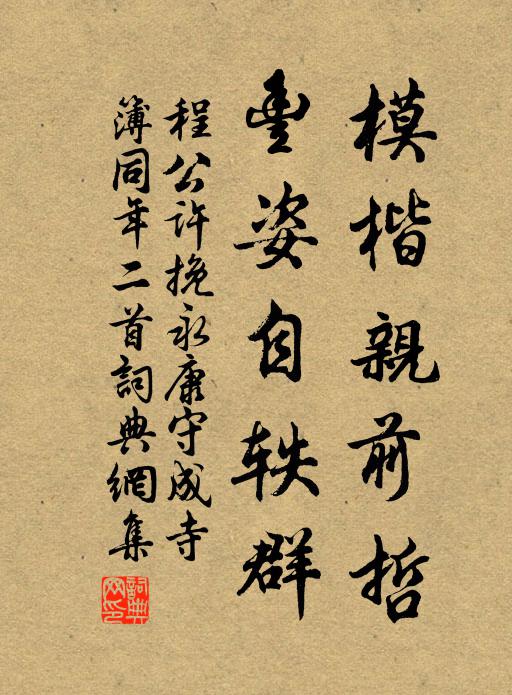 模楷親前哲
豐姿自軼群
程公許挽永康守成寺
簿同年二首詞典網集
詞典网印